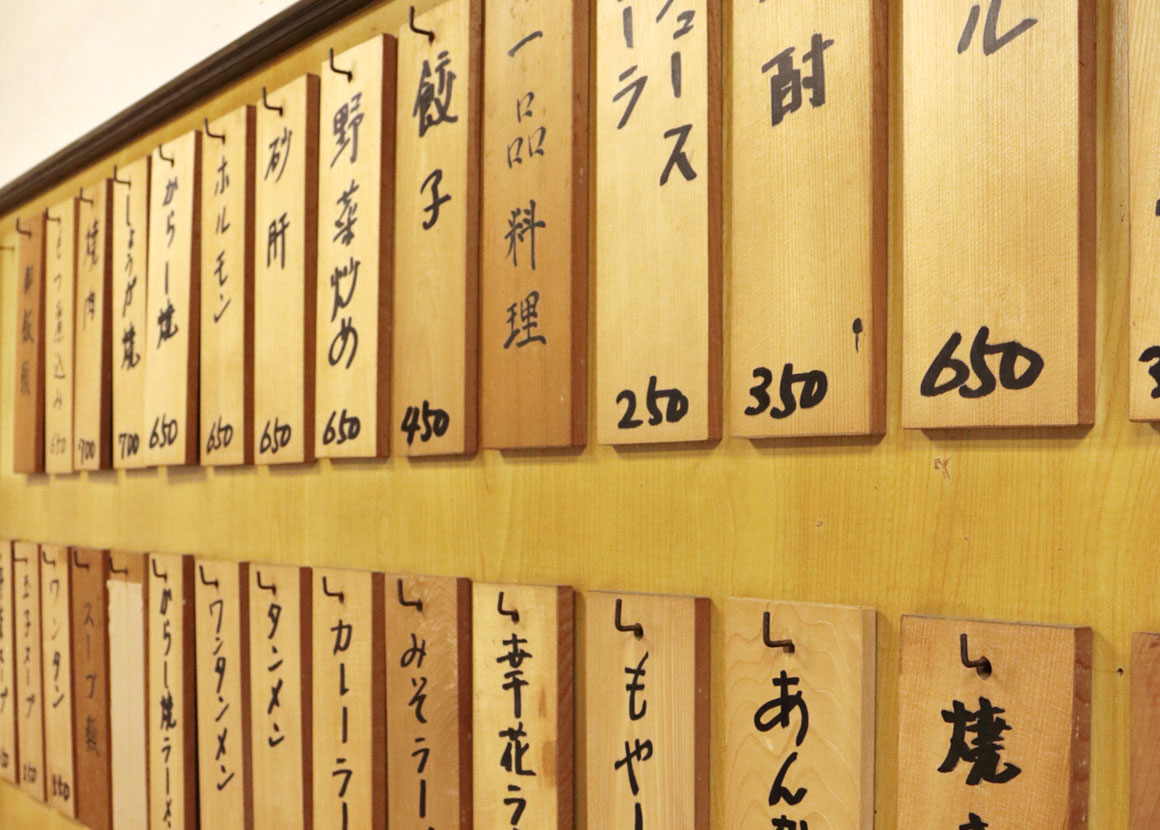 ル
650
酎
350
ュース
ーラ
250
一品料理
餃子
450
野菜炒め
650
砂肝
650
ホルモン
650
からし焼
650
しょうが焼
700
焼肉
700
もつ煮込み
650
焼
あんか
もやし
華花ラ
みそラー
カレーラー
タンメン
ワンタンメン
からし焼ラーメ
スープ類
ワンタン
350
玉子スープ